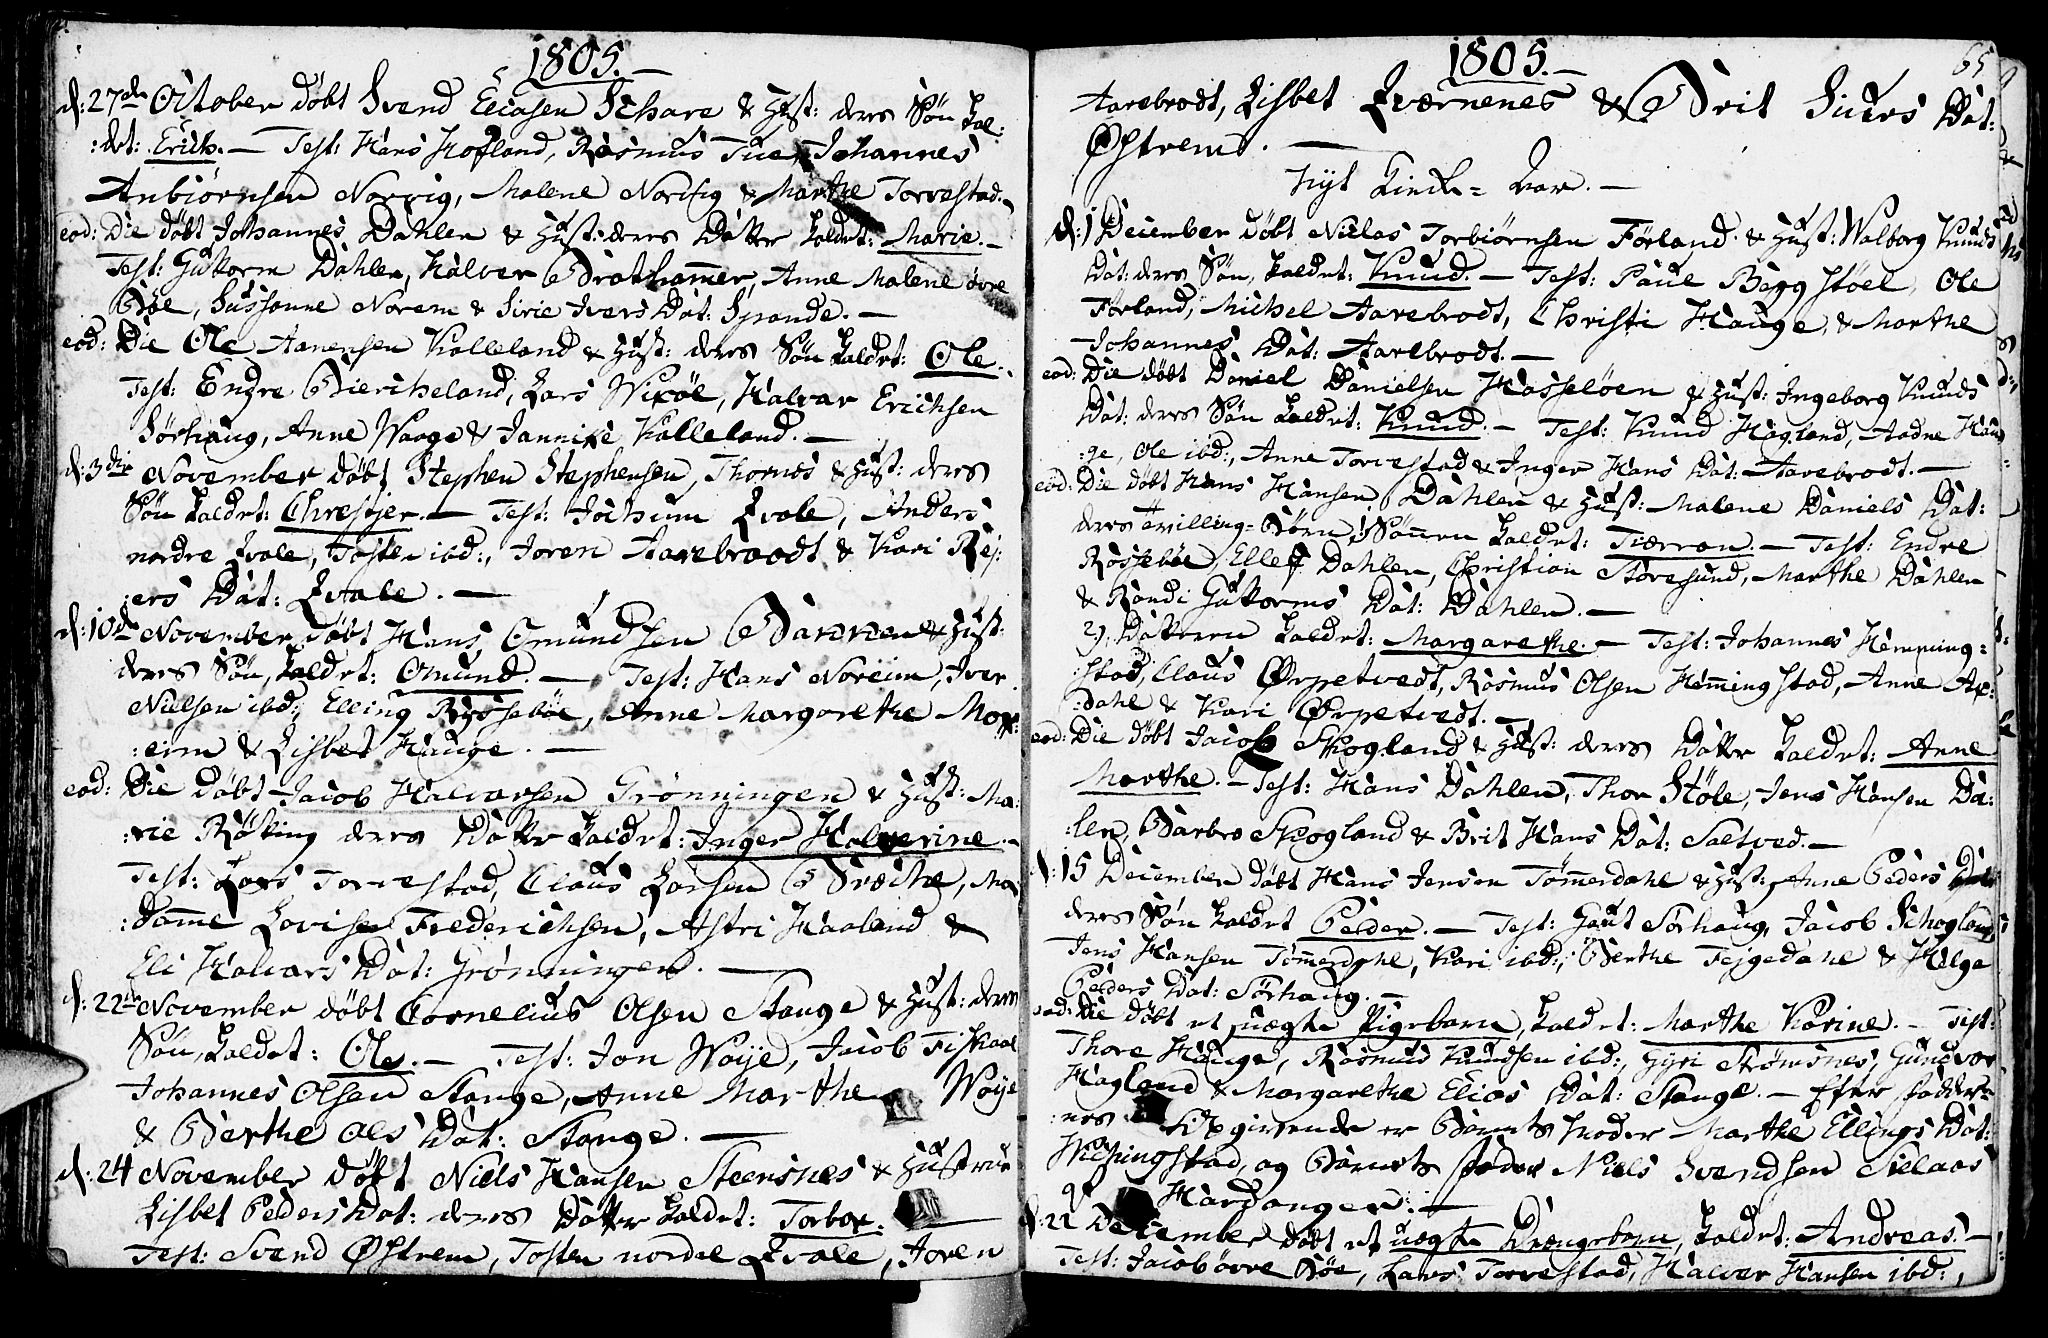 1805.
d: 27de October døbt Svend Eliasen Schare & Hust: deres Søn kal:
:det: Erich. — Test: Hans Hofland, Rasmus Tue, Johannes
Anbiørnsen Norvig, Malene Nordvig & Marthe Torvestad.
eod: Die døbt Johannes Dahlen & Hust: deres Datter kaldet: Marie. —
Test: Guttorm Dahlen, Halver Brathammer, Anne Malene øvre
Bøe, Sussanne Norem & Sirie Ivers Dat: Spande. —
eod: Die Ole Aanensen Kalleland & Hust: deres Søn kaldet: Ole.
Test: Endre Biercheland, Lars Wixøl, Halvar Erichsen
Sørhaug, Anne Waage & Jannike Kalleland. —
d: 3die November døbt Stephen Stephensen, Thornes & Hust: deres
Søn kaldet: Chrestjer. — Test: Jochum Qvale, Anders
nordre Qvale, Tosten ibd:, Joren Aarebraadt & Kari Rej:
:ers Dat: Qvale. —
d: 10de November døbt Hans Omundsen Bakken & Hust:
deres Søn, kaldet: Omund. — Test: Hans Noreim, Iver
Nielsen ibd:, Elling Røssebøe, Anne Margarethe Nor:
:eim & Lisbet Hauge. —
eod: Die døbt Jacob Halvarsen Grønningen & Hust: Ma:
:rie Røking deres Datter kaldet: Inger Halverine. —
Test: Lars Torvestad, Claus Larsen Bræche, Ma:
:damme Lovise Frederichsen, Astri Haaland &
Eli Halvars Dat: Grønningen. —
d: 22de November døbt Cornelius Olsen Stange & Hust: deres
Søn, kaldet: Ole. — Test: Jon Woije, Jacob Fiskaae
Johannes Olsen Stange, Anne Marthe Woije
& Berthe Oles Dat: Stange. —
d: 24 November døbt Niels Hansen Steensnes & Hustrue
Lisbet Peders Dat: deres Datter kaldet: Torbor. —
Test: Svend Østrem, Tosten nordre Qvale, Joren
1805. —
65
Aarebrodt, Lisbet Qværnenes & Brit Siurs Dat:
Østrem. —
Nyt Kirke-Aar. —
d: 1 December døbt Niclas Torbiørnsen Førland & Hust: Walborg Knuds
Dat: deres Søn, kaldet: Knud. — Test: Paul Biggstøel, Ole
Førland, Michel Aarebrodt, Christi Hauge, & Marthe
Johannes Dat: Aarebrodt. —
eod: Die døbt Daniel Danielsen Hasseløen & Hust: Ingeborg Knuds
Dat: deres Søn kaldet: Knud. — Test: Knud Hagland, Aadne Hau
:ge, Ole ibd:, Anne Torvestad & Inger Hans Dat: Aarebrodt. —
eod: Die døbt Hans Hansen Dahlen & Hust: Malene Daniels Dat:
deres Tvilling-Børn, Sønnen kaldet: Tierran. — Test: Endre
Røssebøe, Ellef Dahlen, Christian Storesund, Marthe Dahlen
& Randi Guttorms Dat: Dahlen. —
2) Datteren kaldet: Margarethe. — Test: Johannes Hemming:
:stad, Claus Ørpetvedt, Rasmus Olsen Hemmingstad, Anne Ax:
:dahl & Kari Ørpetvedt. —
eod: Die døbt Jacob Skogland & Hust: deres Datter kaldet: Anne
Marthe. — Test: Hans Dahlen, Thor Støle, Jens Hansen Da:
:len, Barbro Skogland & Brit Hans Dat: Saltved. —
d: 15 December døbt Hans Jensen Tømmerdahl & Hust: Anne Peders Dat:
deres Søn kaldet Peder. — Test: Gaut Sørhaug, Jacob Schogland,
Jens Hansen Tømmerdahl, Kari ibd:, Berthe Fejgedahl & Helga
Peders Dat: Sørhaug. —
eod: Die døbt et uægte Pigebarn, kaldet: Marthe Karine. — Test:
Thore Hauge, Rasmus Knudsen ibd:, Gyri Strømsnes, Gundvor
Hagland & Margarethe Elias Dat: Stange. — Efter Fadder:
:nes Opgivende er Barnets Moder Marthe Ellings Dat:
Wichingstad, og Barnets Fader Niels Svendsen Sielaas
af Hardanger. —
d: 22 December døbt et uægte Drængebarn, kaldet: Andreas. —
Test: Jacob øvre Bøe, Lars Torvestad, Halver Hansen ibd:,